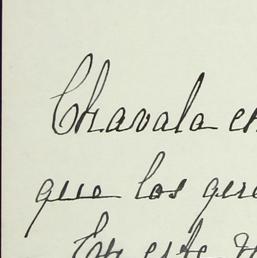 Chavala en
que los gere
En este